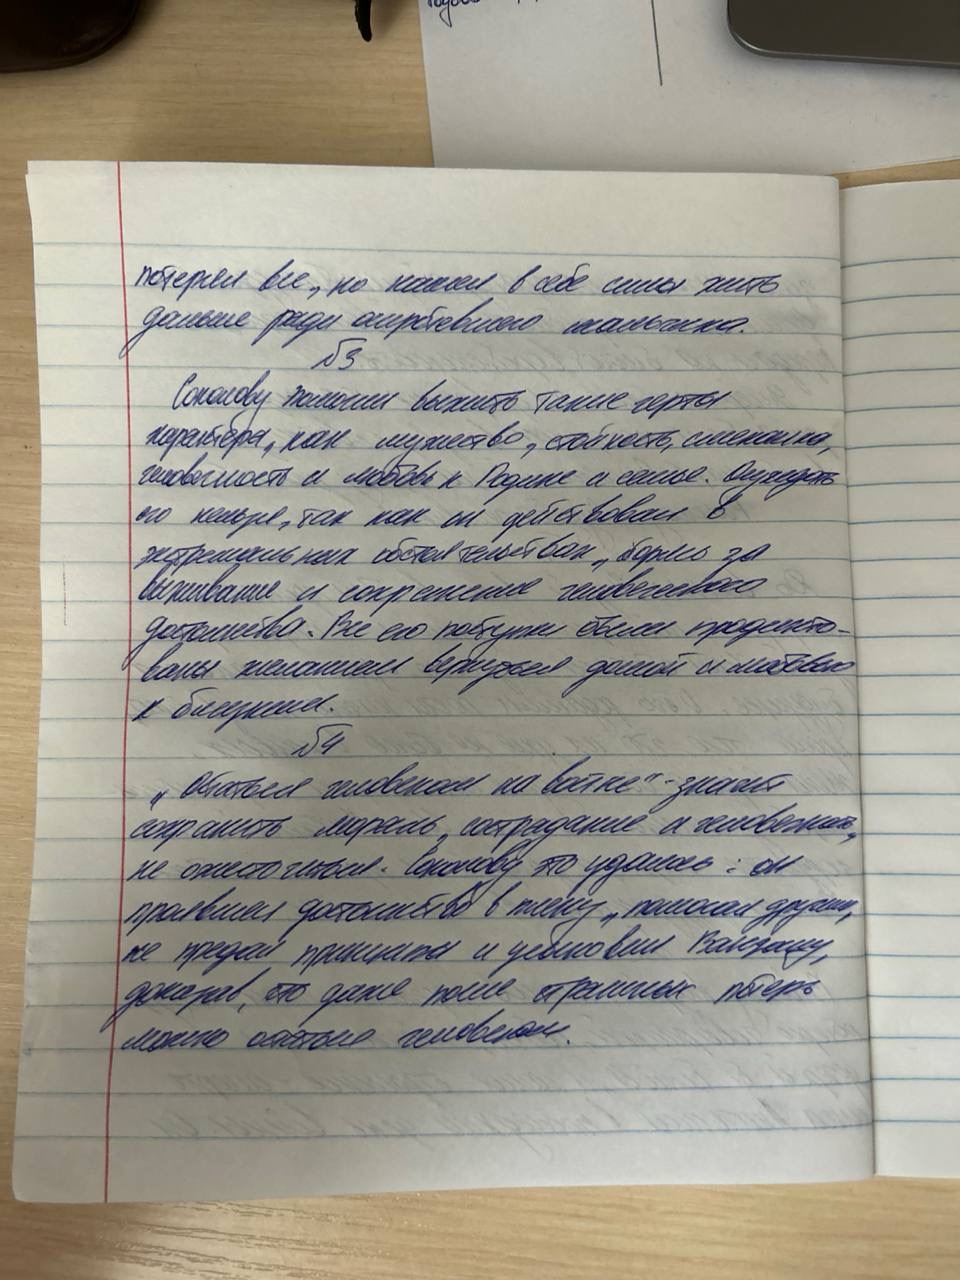 потерял все, но нашел в себе силы жить
дальше ради осиротевшего мальчика.
№3
Соколову помогли выжить такие черты
характера, как мужество, стойкость, смекалка,
человечность и любовь к Родине и семье. Осуждать
его нельзя, так как он действовал в
экстремальных обстоятельствах, борясь за
выживание и сохранение человеческого
достоинства. Все его поступки были продикто-
ваны желанием вернуться домой и любовью
к близким.
№4
„Остаться человеком на войне" - значит
сохранить мораль, сострадание и человечность,
не ожесточиться. Соколову это удалось: он
проявлял достоинство в плену, помогал другим,
не предал принципы и усыновил Ванюшу,
доказав, что даже после страшных потерь
можно остаться человеком.